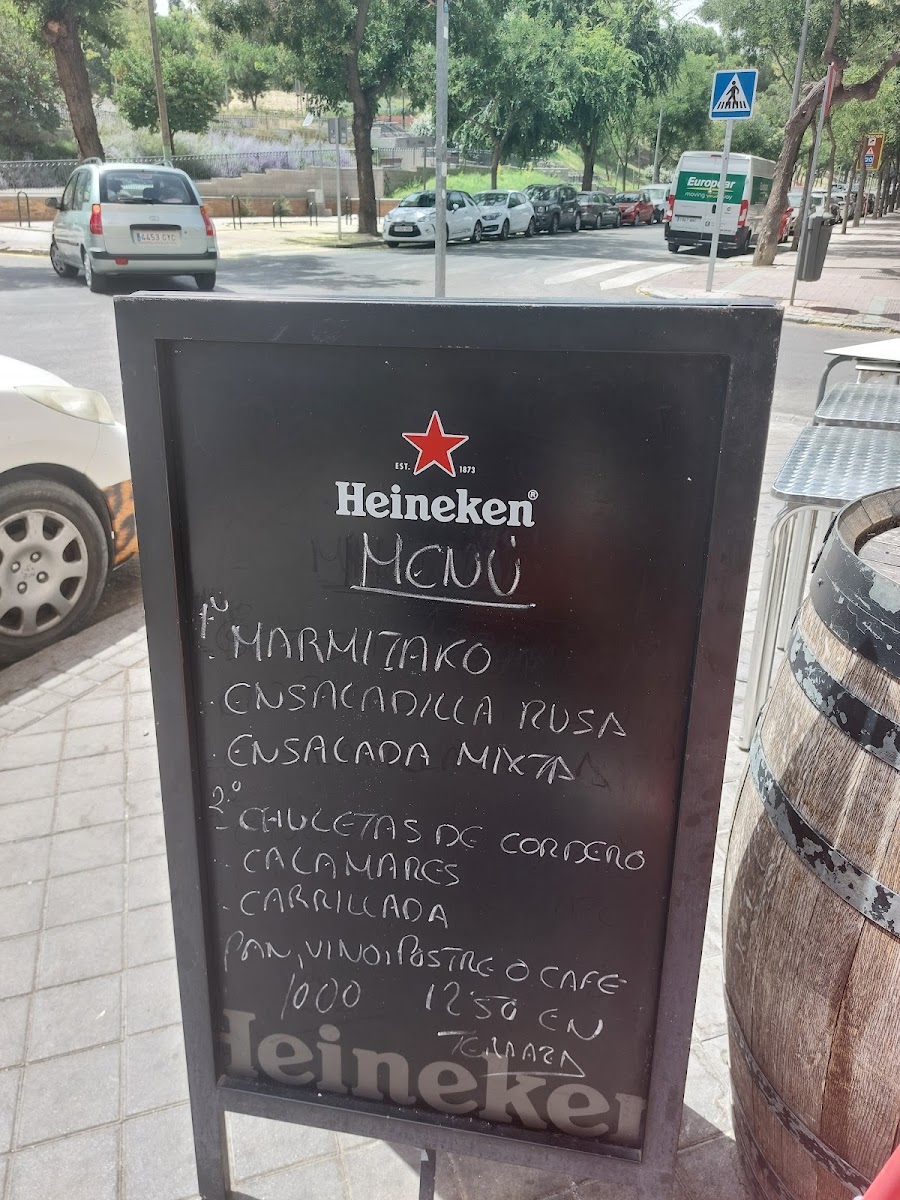 4453 CYC
Europcar
moving your way
EST. 1873
Heineken®
MENÚ
1º
. MARMITAKO
. ENSALADILLA RUSA
. ENSALADA MIXTA
2.º
- CHULETAS DE CORDERO
. CALAMARES
. CARRILLADA
PAN, VINO, POSTRE O CAFE
1000 12'50 EN
TERRAZA
Heineken